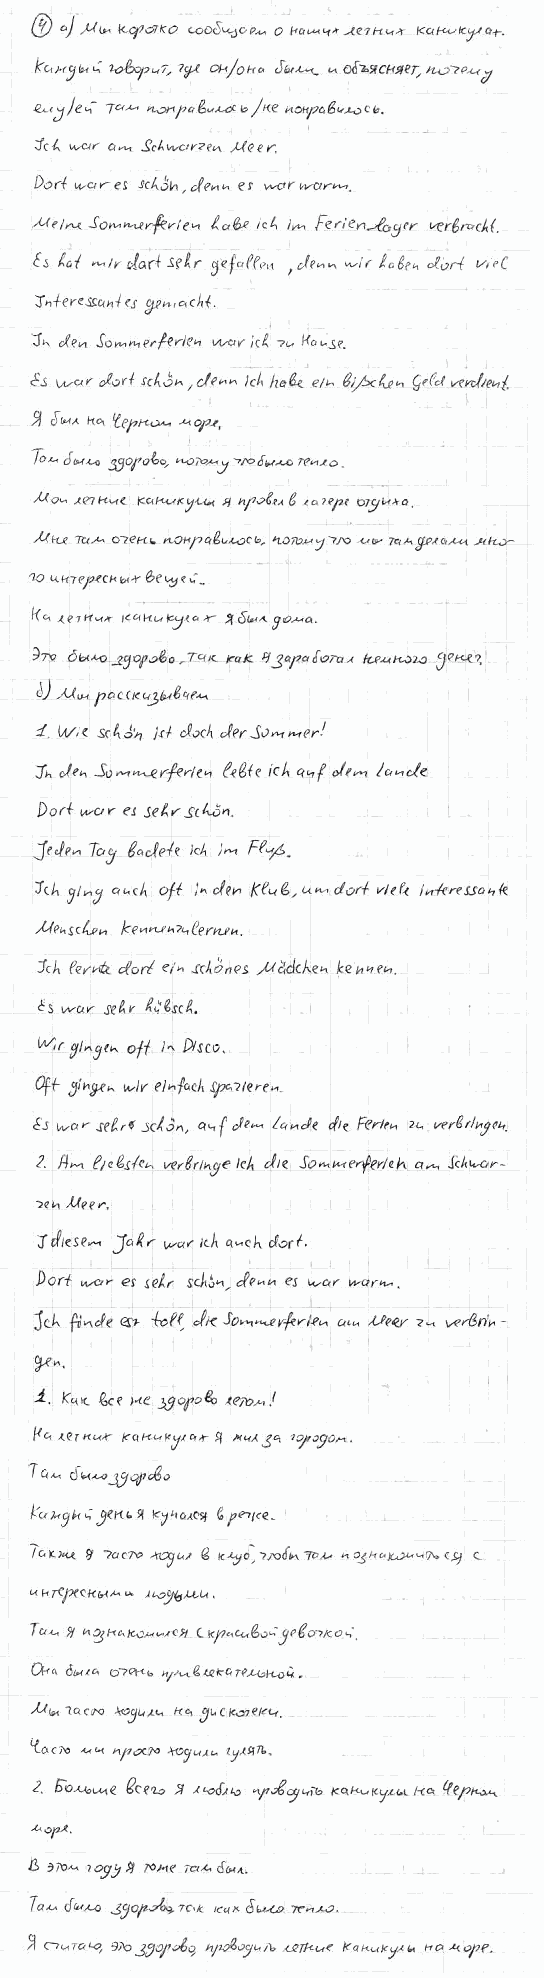 ④ а) Мы коротко сообщаем о наших летних каникулах.
Каждый говорит, где он/она были и объясняет, почему
ему/ей там понравилось/не понравилось.
Ich war am Schwarzen Meer.
Dort war es schön, denn es war warm.
Meine Sommerferien habe ich im Ferienlager verbracht.
Es hat mir dort sehr gefallen, denn wir haben dort viel
Interessantes gemacht.
In den Sommerferien war ich zu Hause.
Es war dort schön, denn ich habe ein bißchen Geld verdient.
Я был на Черном море.
Там было здорово, потому что было тепло.
Мои летние каникулы я провел в лагере отдыха.
Мне там очень понравилось, потому что мы там делали мно-
го интересных вещей.
На летних каникулах я был дома.
Это было здорово, так как я заработал немного денег.
б) Мы рассказываем
1. Wie schön ist doch der Sommer!
In den Sommerferien lebte ich auf dem Lande
Dort war es sehr schön.
Jeden Tag badete ich im Fluß.
Ich ging auch oft in den Klub, um dort viele interessante
Menschen kennenzulernen.
Ich lernte dort ein schönes Mädchen kennen.
Es war sehr hübsch.
Wir gingen oft in Disco.
Oft gingen wir einfach spazieren.
Es war sehr schön, auf dem Lande die Ferien zu verbringen.
2. Am liebsten verbringe ich die Sommerferien am Schwar-
zen Meer.
I diesem Jahr war ich auch dort.
Dort war es sehr schön, denn es war warm.
Ich finde es toll, die Sommerferien am Meer zu verbrin-
gen.
1. Как все же здорово летом!
На летних каникулах я жил за городом.
Там было здорово
Каждый день я купался в речке.
Также я часто ходил в клуб, чтобы там познакомиться с
интересными людьми.
Там я познакомился с красивой девочкой.
Она была очень привлекательной.
Мы часто ходили на дискотеки.
Часто мы просто ходили гулять.
2. Больше всего я люблю проводить каникулы на Черном
море.
В этом году я тоже там был.
Там было здорово, так как было тепло.
Я считаю, это здорово, проводить летние каникулы на море.